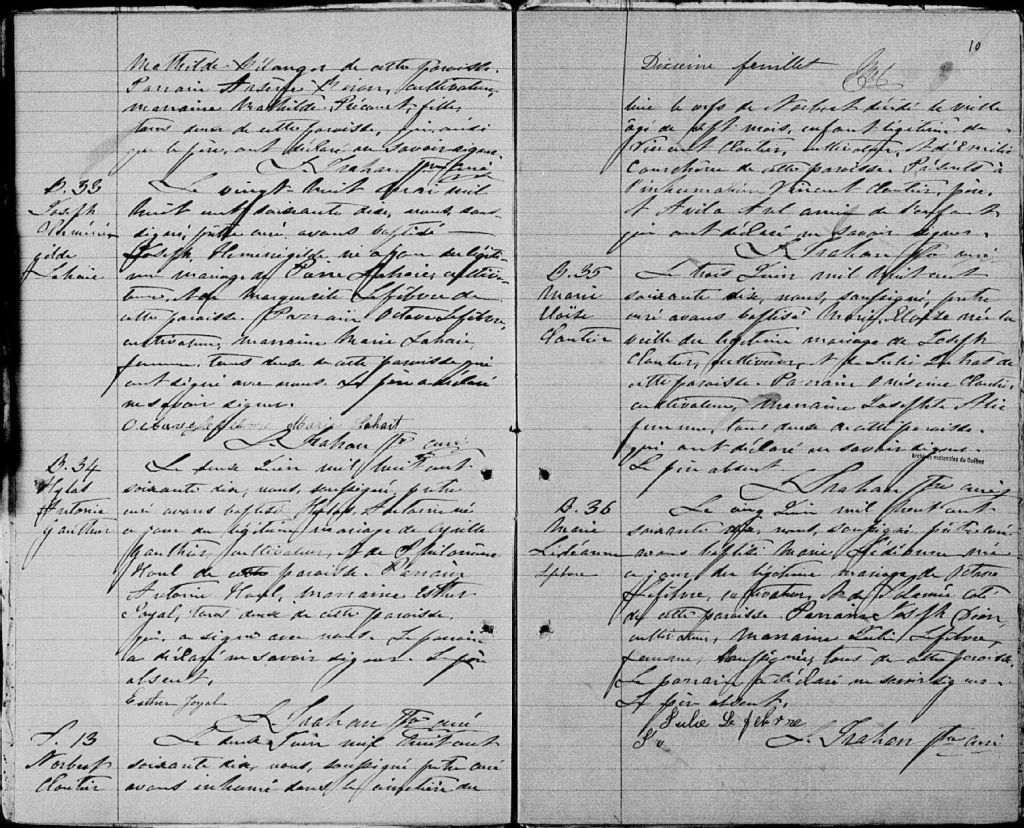 Mathilde Bélanger de cette paroisse.
Parrain Narcisse cultivateur,
marraine Mathilde Picourt, fille,
tous deux de cette paroisse, qui, ainsi
que le père, ont déclaré ne savoir signer.
L. Trahan Ptre curé
B. 33
Joseph
Herméné
gilde
Lahaie
Le vingt huit Mai mil
huit cent soixante dix, nous sous
signé, prêtre curé avons baptisé
Joseph Herménégilde né a jour du légiti
me mariage de Pierre Lahaie, cultiva
teur, et de Marguerite Lefebvre de
cette paroisse. Parrain Octave Lefebvre,
cultivateur, marraine Marie Lahaie,
femme, tous deux de cette paroisse qui
ont signé avec nous. Le père a déclaré
ne savoir signer.
Octave Lefebvre Marie Lahait
L. Trahan Ptre curé
B. 34
Hylas
Antoine
Gauthier
Le deux Juin mil huit cent
soixante dix, nous, soussigné, prêtre
curé avons baptisé Hylas Antoine né
a jour du légitime mariage de Cyrille
Gauthier, cultivateur, et de Philomène
Houl de cette paroisse. Parrain
Antoine Houl, marraine Esther
Joyal, tous deux de cette paroisse,
qui, a signé avec nous. Le parrain
a déclaré ne savoir signer. Le père
absent.
Esther Joyal
L. Trahan Ptre curé
S. 13
Norbert
Cloutier
Le deux Juin mil huit cent
soixante dix, nous, soussigné, prêtre curé
avons inhumé dans le cimetière du
10
Dixième feuillet
lieu le corps de Norbert décédé la veille
âgé de sept mois, enfant légitime de
Vincent Cloutier, cultivateur, et d'Emilie
Courchène de cette paroisse. Présents à
l'inhumation Vincent Cloutier, père,
et Avila ami de l'enfant
qui ont déclaré ne savoir signer.
L. Trahan Ptre curé
B. 35
Marie
Cloutier
Le trois Juin mil huit cent
soixante dix, nous, soussigné, prêtre
curé avons baptisé Marie née la
veille du légitime mariage de Joseph
Cloutier, cultivateur, et de de
cette paroisse. Parrain Onésime Cloutier
cultivateur, marraine Josephte Alie
femme, tous deux de cette paroisse
qui ont déclaré ne savoir signer.
Archives nationales du Québec
Le père absent
L. Trahan Ptre curé
B. 36
Marie
Lefebvre
Le cinq Juin mil huit cent
soixante dix, nous, soussigné, prêtre curé
avons baptisé Marie née
a jour du légitime mariage de Octave
Lefebvre, cultivateur, et de
de cette paroisse. Parrain Joseph Dion
cultivateur, marraine Julie Lefebvre,
femme, soussignée, tous de cette paroisse.
Le parrain a déclaré ne savoir signer.
Le père absent.
Julie Lefebvre
L. Trahan Ptre curé